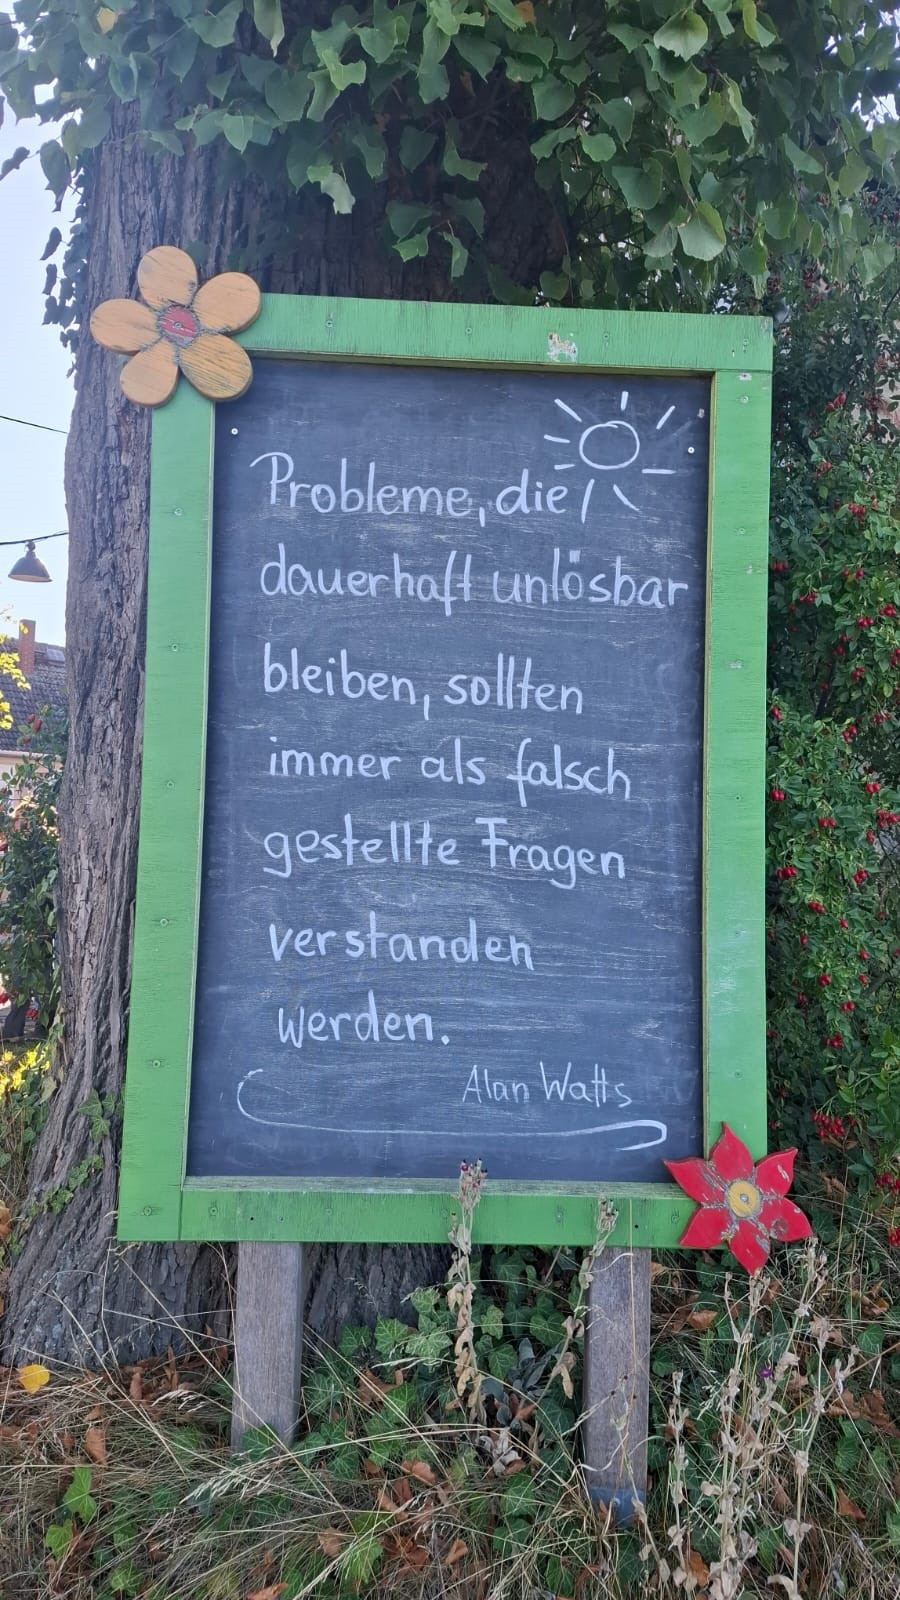 Probleme, die
dauerhaft unlösbar
bleiben, sollten
immer als falsch
gestellte Fragen
verstanden
werden.
Alan Watts